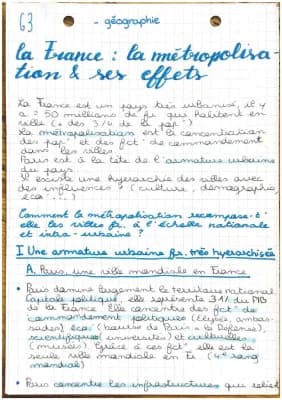 G3
- géographie
la France : la métropolisa-
tion & ses effets
La France est un pays très urbanisé, il y
a ≈ 50 millions de fr. qui habitent en
ville (+ des 3/4 de la pop°)
La métropolisation est la concentration
des pop° et des fct° de commandement
dans les villes
Paris est à la tête de l'armature urbaine
du pays
Il existe une hyerarchie des villes avec
des influences ≠ (culture, démographie,
éco ...)
Comment la métropolisation recompose-t-
elle les villes fr. à l'échelle nationale
et intra-urbaine ?
I Une armature urbaine fr. très hyerarchisée
A. Paris, une ville mondiale en France
• Paris domine largement le territoire national
Capitale politique, elle représente 31% du PIB
de la France. Elle concentre des fct° de
commandement politiques (Elysée, ambas-
sades) éco (bourse de Paris - la Défense),
scientifiques (universités) et culturelles
(musées). Grâce à ces fct° elle est la
seule ville mondiale en Fr (4e rang
mondial)
• Paris concentre les infrastructures qui relient